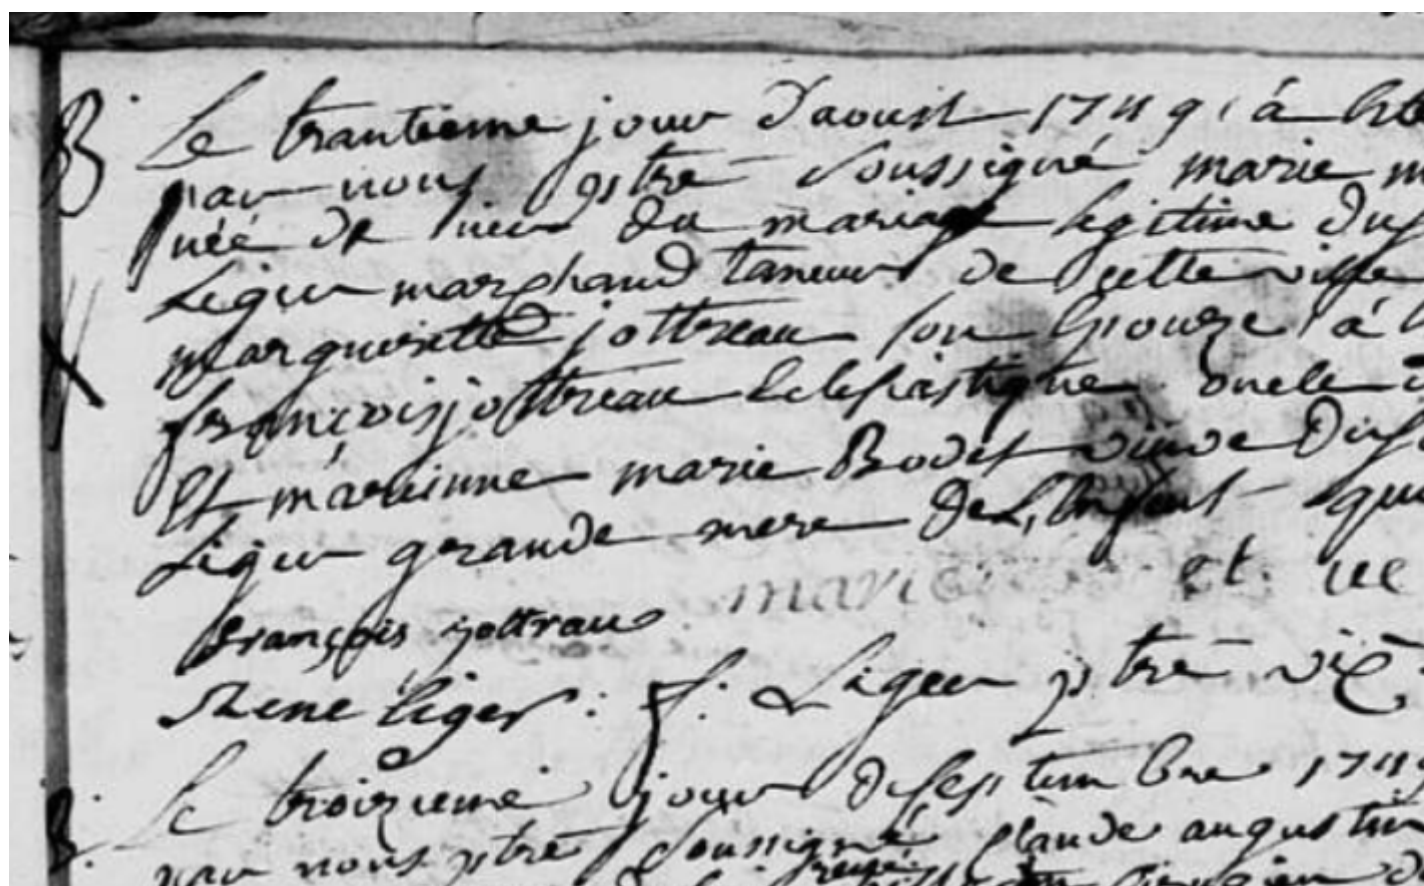 B.
Le trantieme jour d'aoust 1749 à
par nous ptre soussigné marie
née de hier du mariage legitime du
Liger marchand taneur de cette ville
margueritte jottreau son epouze à
françois jottreau Eclesiastique oncle
Et marianne marie Bodet veuve du
Liger grande mere de L'enfent qui
et ne
françois jottrau
Rene liger : f. Liger ptre vic
B. Le troizieme jour de septembre 1749
par nous ptre soussigné Claude augustin